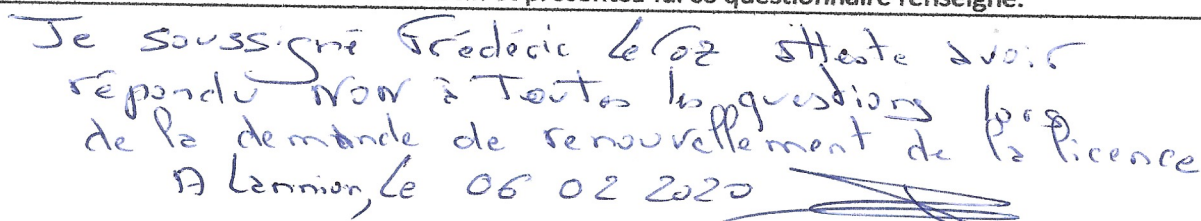 présentez-lui ce questionnaire renseigné.
Je soussigné Frédéric Le Goz atteste avoir
répondu NON à Toutes les questions lors
de la demande de renouvellement de la licence
A Lannion, Le 06 02 2020